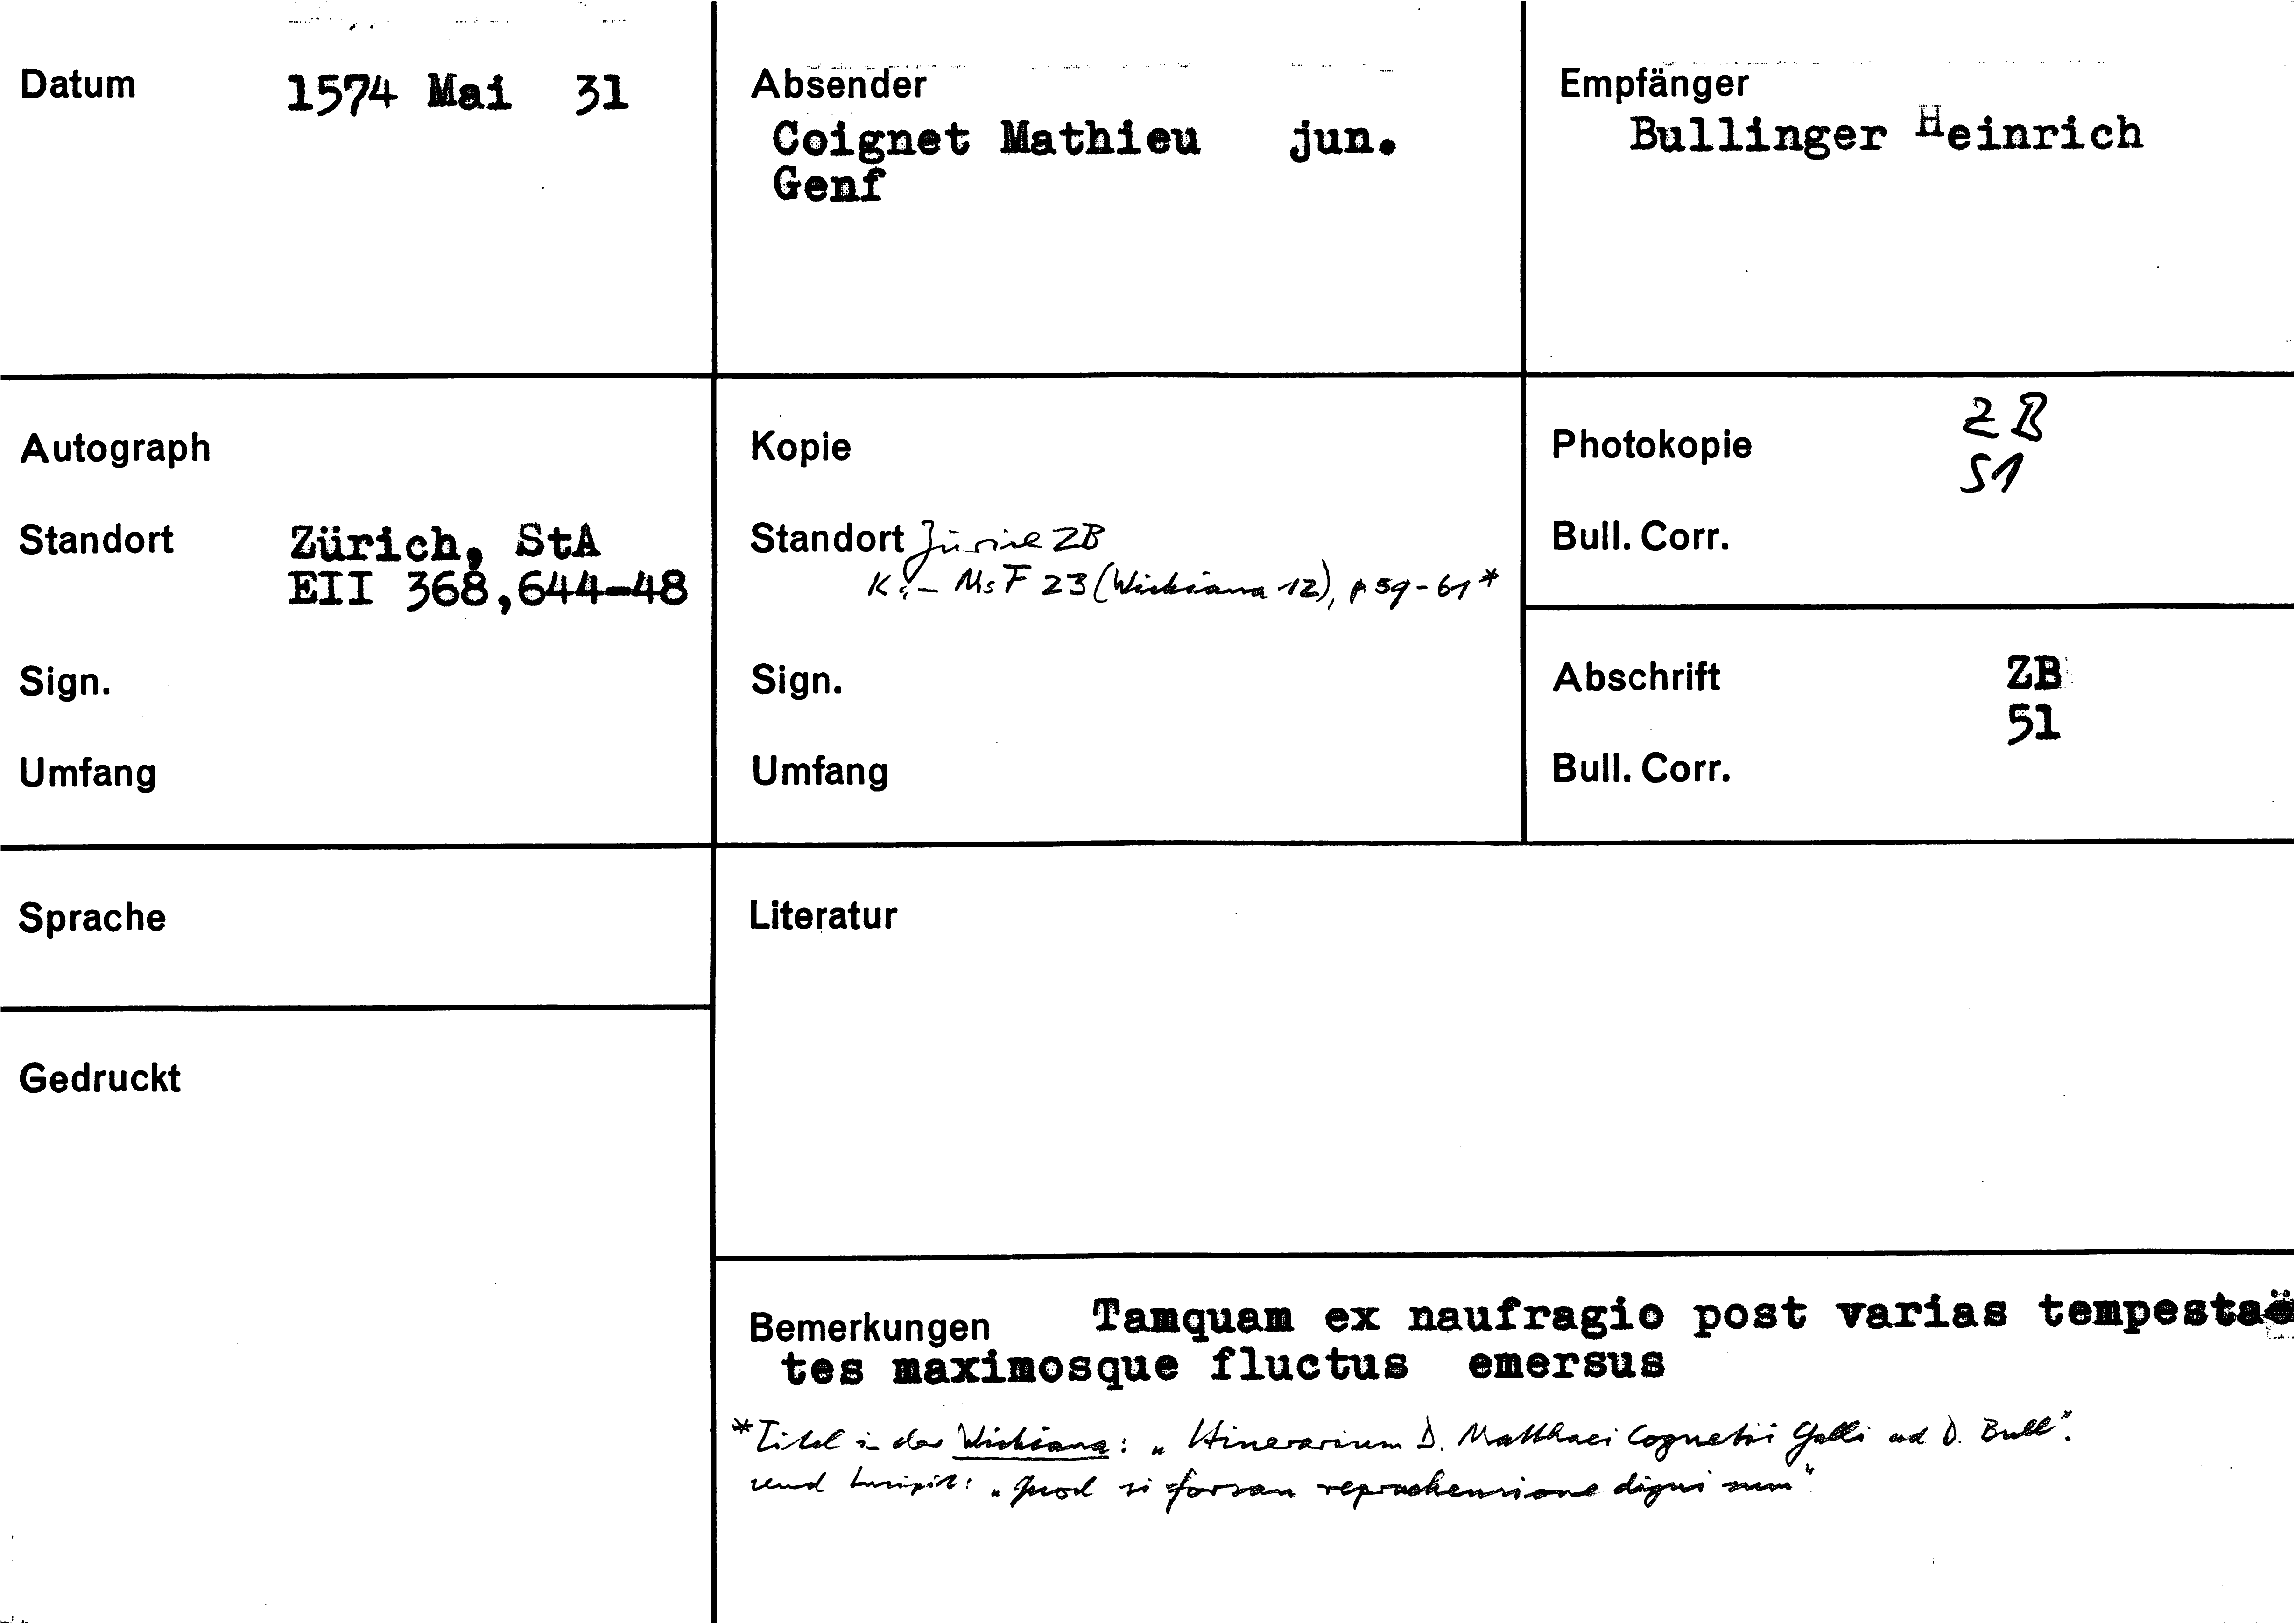 Datum 1574 Mai 31
Absender
Coignet Mathieu jun.
Genf
Empfänger
Bullinger Heinrich
Autograph
Standort Zürich, StA
EII 368,644-48
Sign.
Umfang
Kopie
Standort Zürich ZB
K: - Ms F 23 (Wickiana 12), p 59-61*
Sign.
Umfang
Photokopie ZB
51
Bull. Corr.
Abschrift ZB
51
Bull. Corr.
Sprache
Gedruckt
Literatur
Bemerkungen Tamquam ex naufragio post varias tempesta
tes maximosque fluctus emersus
*Titel in der Wickiana: „Itinerarium D. Matthaei Cognetii Galli ad D. Bull".
und Incipit: „Quod si forsan reprachensione digni sum"